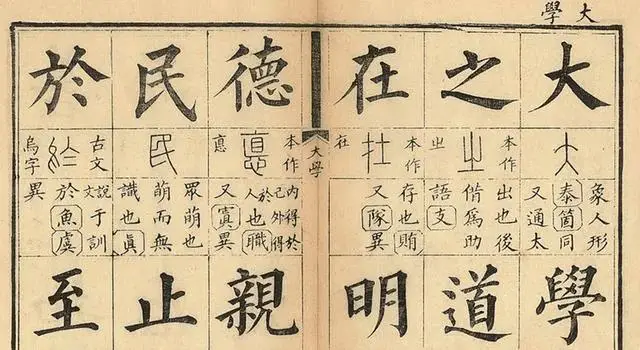 大學
大
象人形
泰箇同
又通太
學
之
本作
㞢
出也後
借爲助
語支
道
在
本作
在
存也賄
又隊異
明
大學
德
本作
悳
内得於
己外得
於人也職
又寘異
親
民
眾萌也
萌而無
識也眞
止
於
古文
烏字
說文于訓
於魚虞
異
至